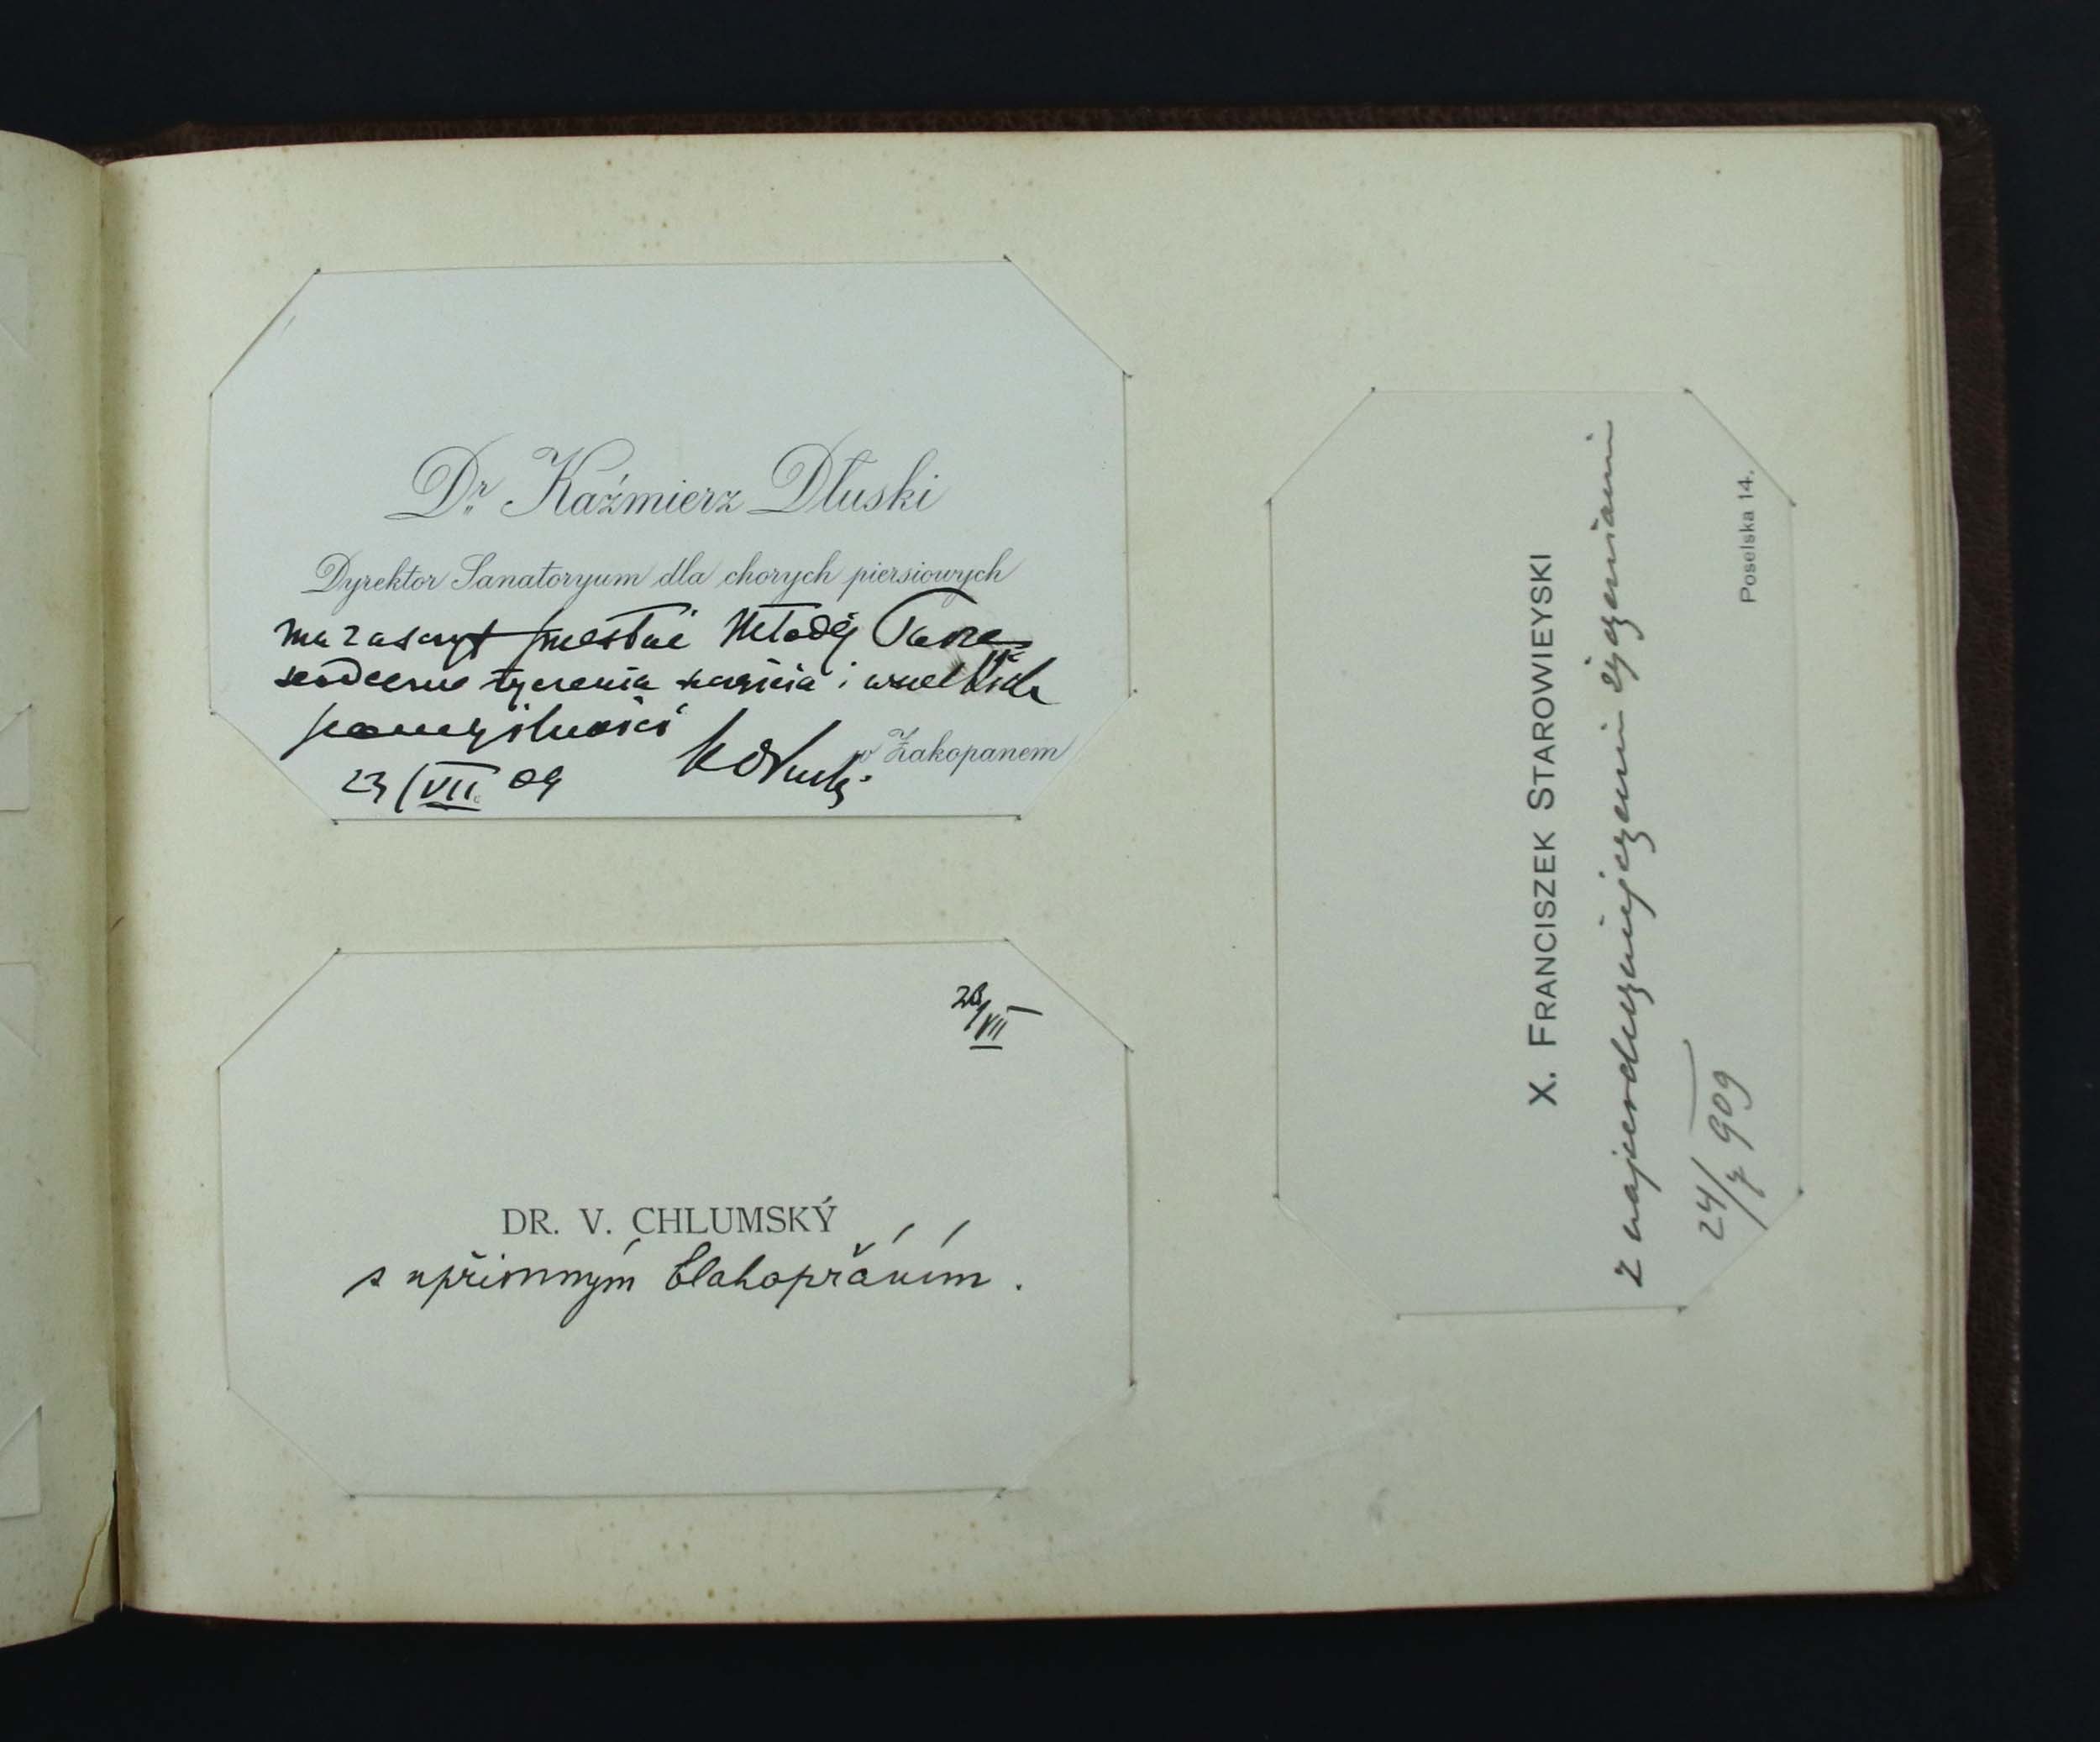 Dr. Kaźmierz Dłuski
Dyrektor Sanatoryum dla chorych piersiowych
ma zaszczyt przesłać Młodej Parze
serdeczne życzenia szczęścia i wszelkich
pomyślności
w Zakopanem
23/VII 09 KDłuski
28/VII
DR. V. CHLUMSKÝ
s upřímným blahopřáním.
X. FRANCISZEK STAROWIEYSKI
z najserdeczniejszemi życzeniami
24/7 909
Poselska 14.